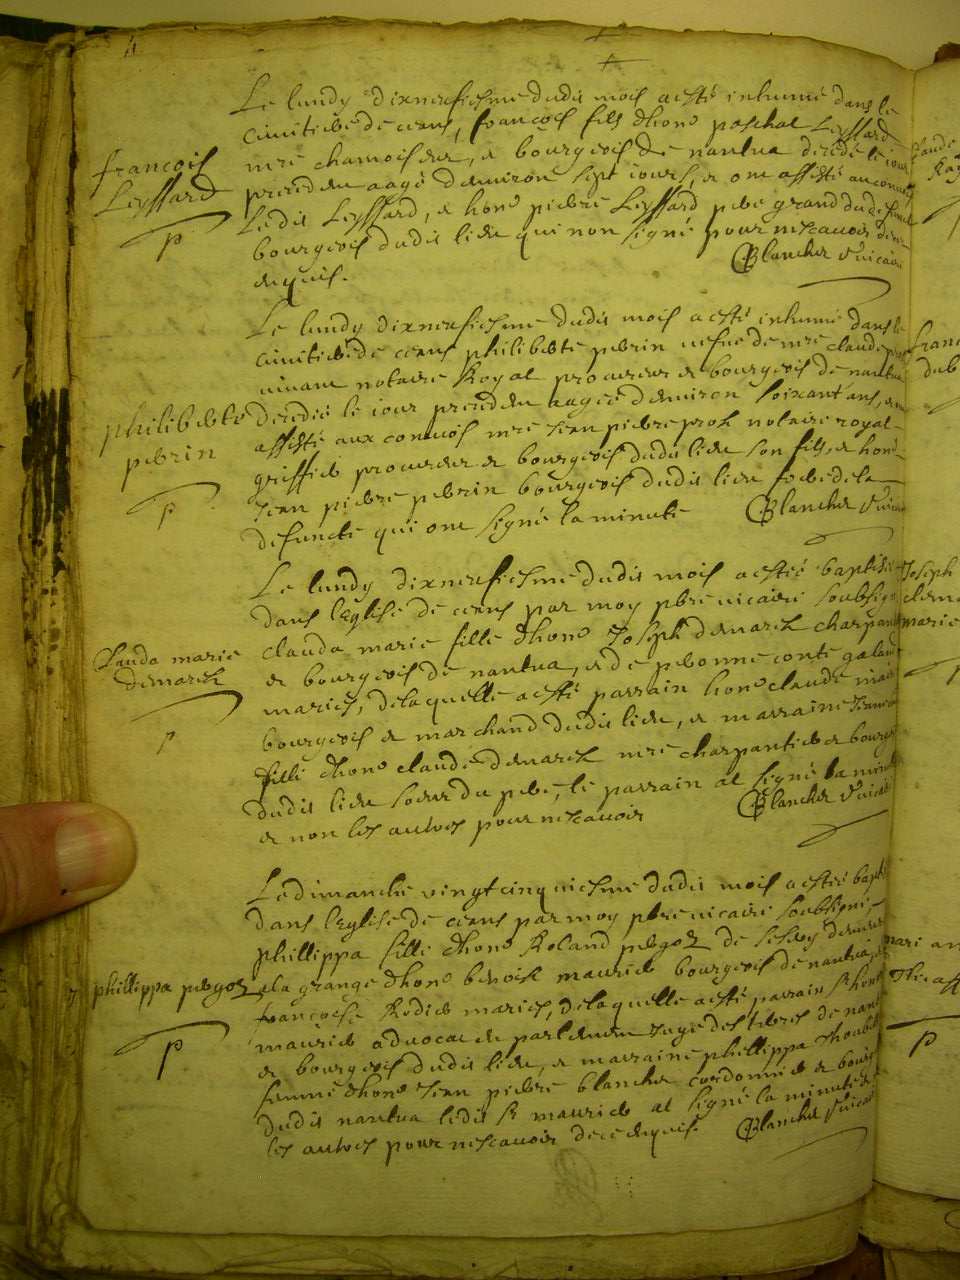 francois
Leyssard
p
Le lundy dixneufiesme dudit mois a esté inhumé dans le
cimitiere de ceans, francois fils dhon. paschal Leyssard
mre chamoiseur, et bourgeois de nantua decedé le iour
precedent aagé denviron sept iours, et ont assisté au convoy
Ledit Leyssard, et hono pierre Leyssard pere grand du defunct
bourgeois dudit lieu qui non signé pour ne scavoir de ce
enquis.
Blancher vicaire
philiberte
perrin
p
Le lundy dixneufiesme dudit mois a esté inhumé dans le
cimitiere de ceans philiberte perrin vefue de mre claude
vivant notaire Royal procureur et bourgeois de nantua
decedée le iour precedent aagée denviron soixant ans, ont
assisté aux convois mre Jean pierre notaire royal
greffier procureur et bourgeois dudit lieu son fils, et hono
Jean pierre perrin bourgeois dudit lieu frere de la
defuncte qui ont signé la minute
Blancher vicaire
Clauda marie
demarch
p
Le lundy dixneufiesme dudit mois a esté baptisée
dans leglise de ceans par moy pbre vicaire soubsigné
clauda marie fille dhono Joseph demarch charpantier
et bourgeois de nantua, et de peronne conte galland
mariés, de laquelle a esté parrain hono claude
bourgeois et marchand dudit lieu, et marraine
fille dhono claude demarch mre charpantier et bourgeois
dudit lieu soeur du pere, le parrain at signé la minute
et non les autres pour ne scavoir
Blancher vicaire
phillippa pergoz
p
Le dimanche vingtcinquiesme dudit mois a esté baptisée
dans leglise de ceans par moy pbre vicaire soubsigné
phillippa fille dhono Roland pergoz de
a la grange dhono benoist maurier bourgeois de nantua, et
francoise Rodier mariés, de laquelle a esté parrain Sr hono
maurier advocat en parlement Juge des terres de nantua
et bourgeois dudit lieu, et marraine phillippa
femme dhono Jean pierre blancher cordonnier et bourgeois
dudit nantua ledit Sr maurier at signé la minute et non
les autres pour ne scavoir de ce enquis.
Blancher vicaire
Joseph
marie
p